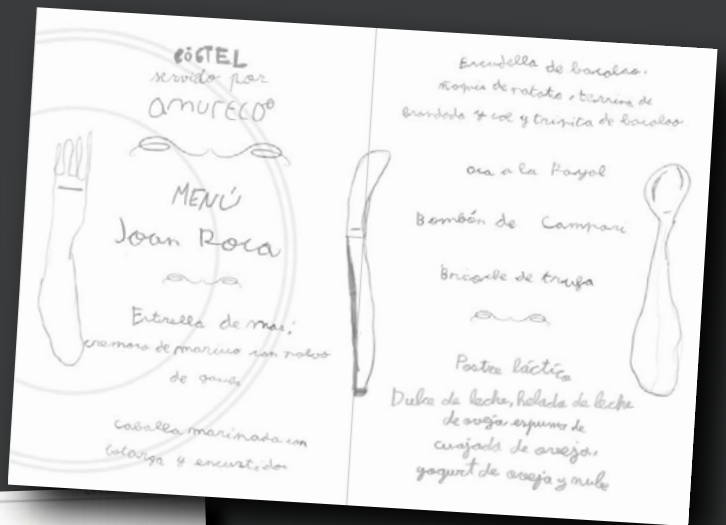 CÓSTEL
servido por
amureco
MENÚ
Joan Roca
Estrella de mar;
cremoso de marisco con polvo
de gamba
caballa marinada con
botarga y encurtidos
Escudella de bacalao.
ñoquis de patata, terrina de
brandada y col y tripita de bacalao
oca a la Royal
Bombón de Campari
Brioche de trufa
Postre láctico
Dulce de leche, helado de leche
de oveja, espuma de
cuajada de oveja,
yogurt de oveja y nube